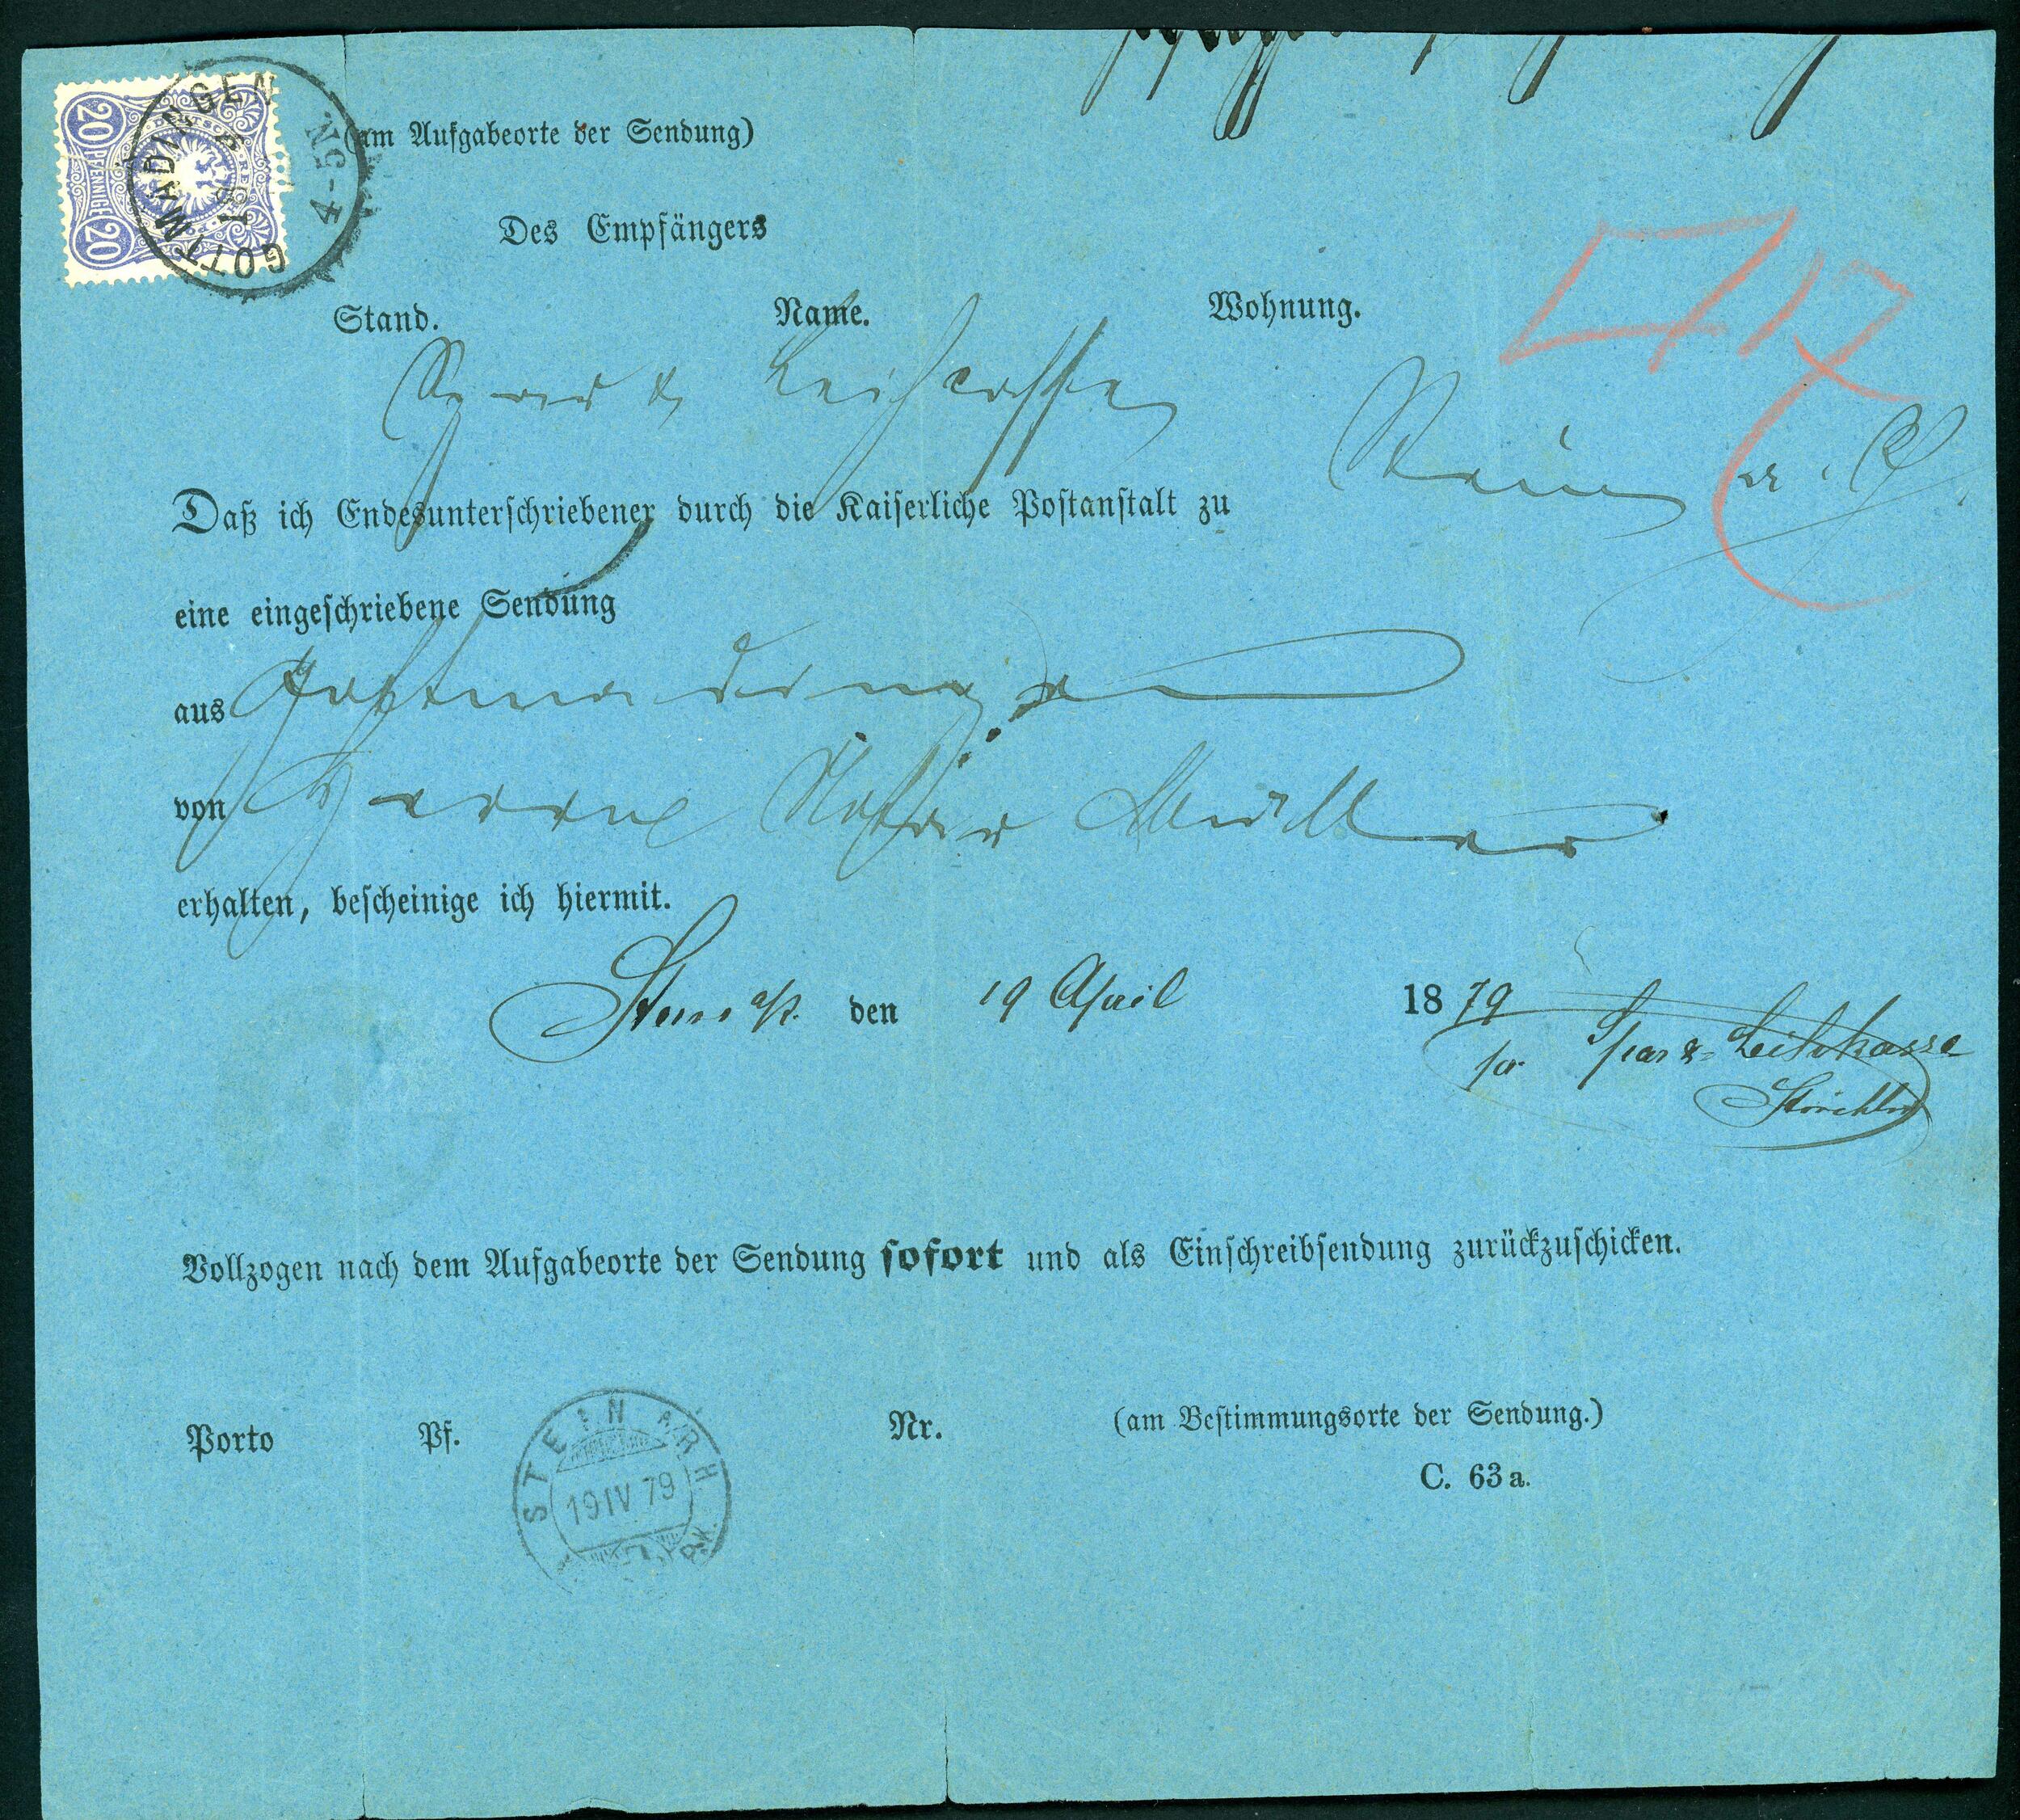 20 PFENNIGE 20
GOTTMADINGEN
4-5N
(am Aufgabeorte der Sendung)
Des Empfängers
Stand. Name. Wohnung.
Spar & Leihcasse Stein a. R.
Daß ich Endesunterschriebener durch die Kaiserliche Postanstalt zu
eine eingeschriebene Sendung
aus Gottmadingen
von Herrn Notar Müller
erhalten, bescheinige ich hiermit.
Stein a/R. den 19 April 1879
pr. Spar & Leihkasse
Vollzogen nach dem Aufgabeorte der Sendung sofort und als Einschreibsendung zurückzuschicken.
Porto Pf. Nr. (am Bestimmungsorte der Sendung.)
C. 63 a.
STEIN A/RH.
19 IV 79